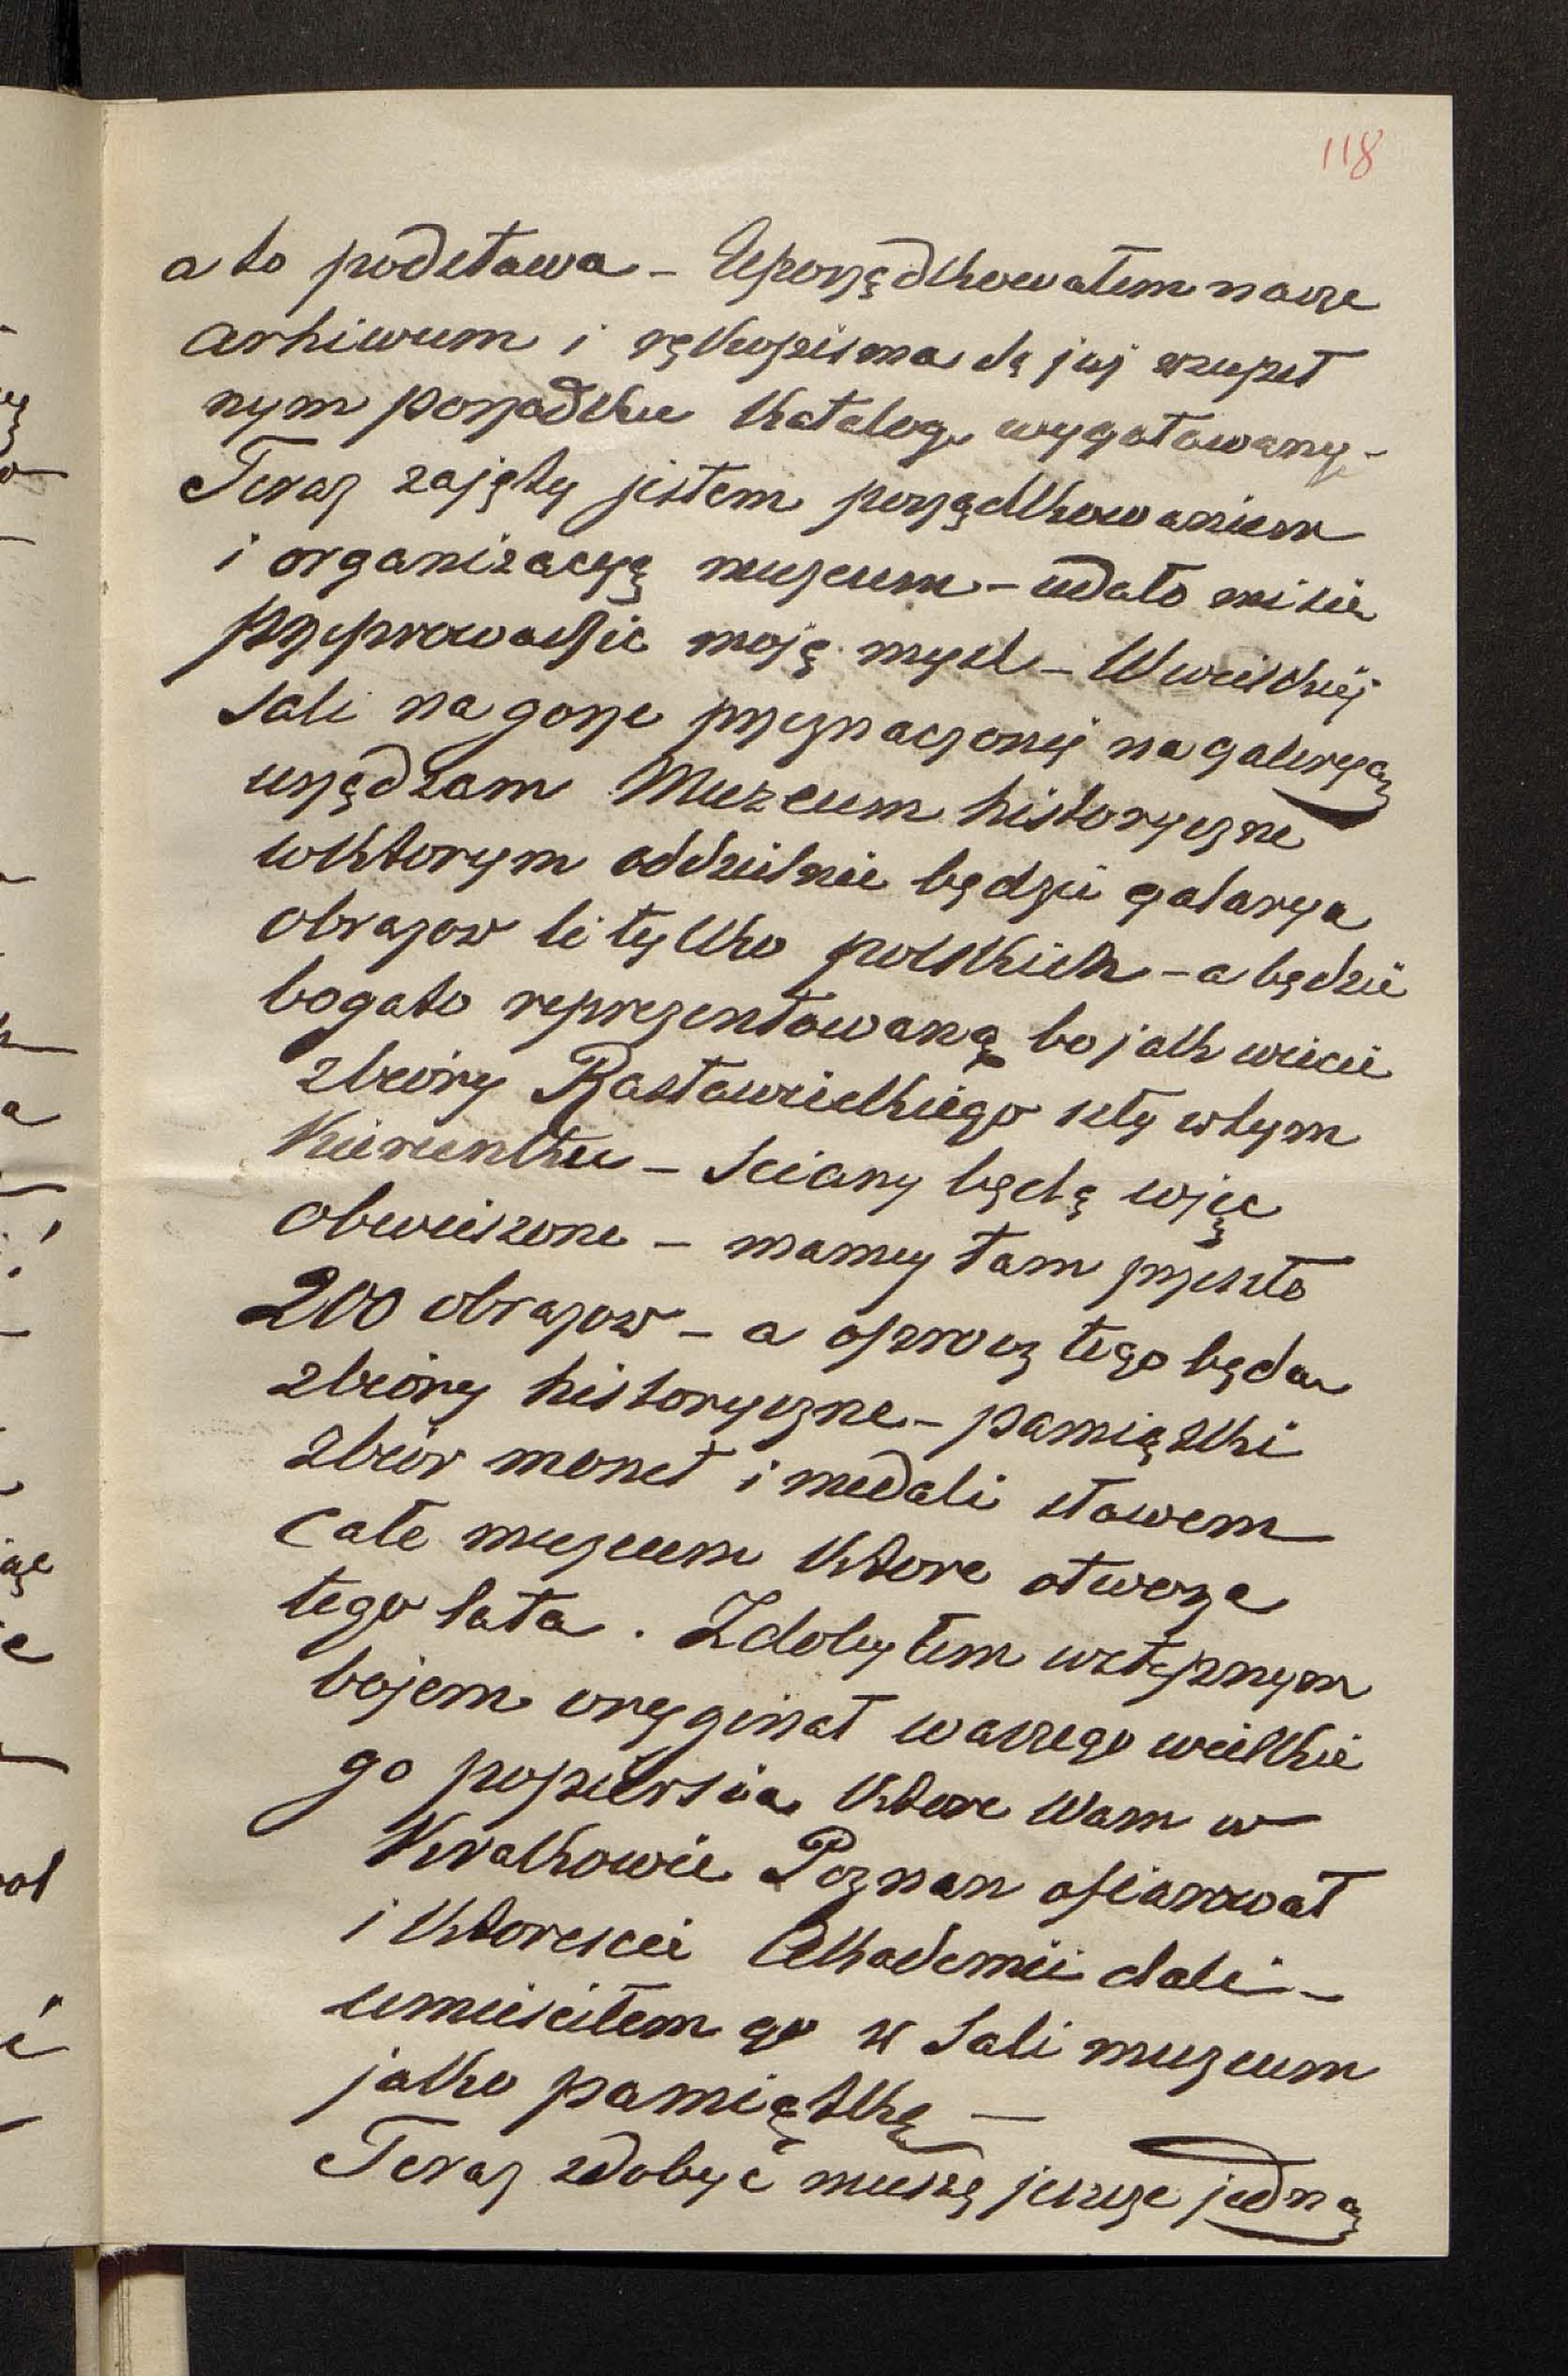 118
a to podstawa – Uporządkowałem nasze
arhiwum i rękopisma są już wzupeł
nym porządku Katalog wygotowany –
Teraz zajęty jestem porządkowaniem
i organizacyą muzeum – udało mi sie
przeprowadzic moją mysl – W wielkiej
sali na gorze przeznaczonej na galeryą
urządzam Muzeum historyczne
wktorym oddzielnie będzie galarya
obrazow li tylko polskich – a będzie
bogato reprezentowaną bo jak wiecie
zbiory Rastawieckiego szły wtym
Kierunku – Sciany będą więc
obwieszone – mamy tam przeszło
200 obrazow – a oprocz tego będa
zbiory historyczne – pamiątki
zbiór monet i medali słowem
całe muzeum Które otworze
tego lata. Zdobyłem wstępnym
bojem oryginał waszego wielkie
go popiersia Które Wam w
Krakowie Poznan ofiarował
i Ktorescie Akademii dali –
umiescilem go w Sali muzeum
jako pamiątkę —
Teraz zdobyć muszę jeszcze jedną